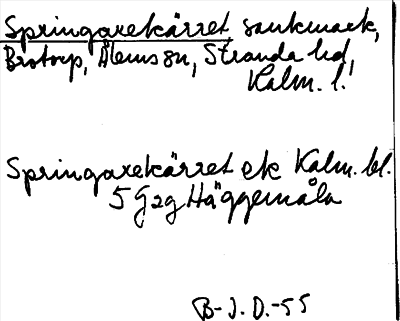 Springarekärret sankmark,
Brotorp, Ålems sn, Stranda hd,
Kalm. l.
Springarekärret ek Kalm. bl.
5 G2g Häggemåla
B-J. D.-55